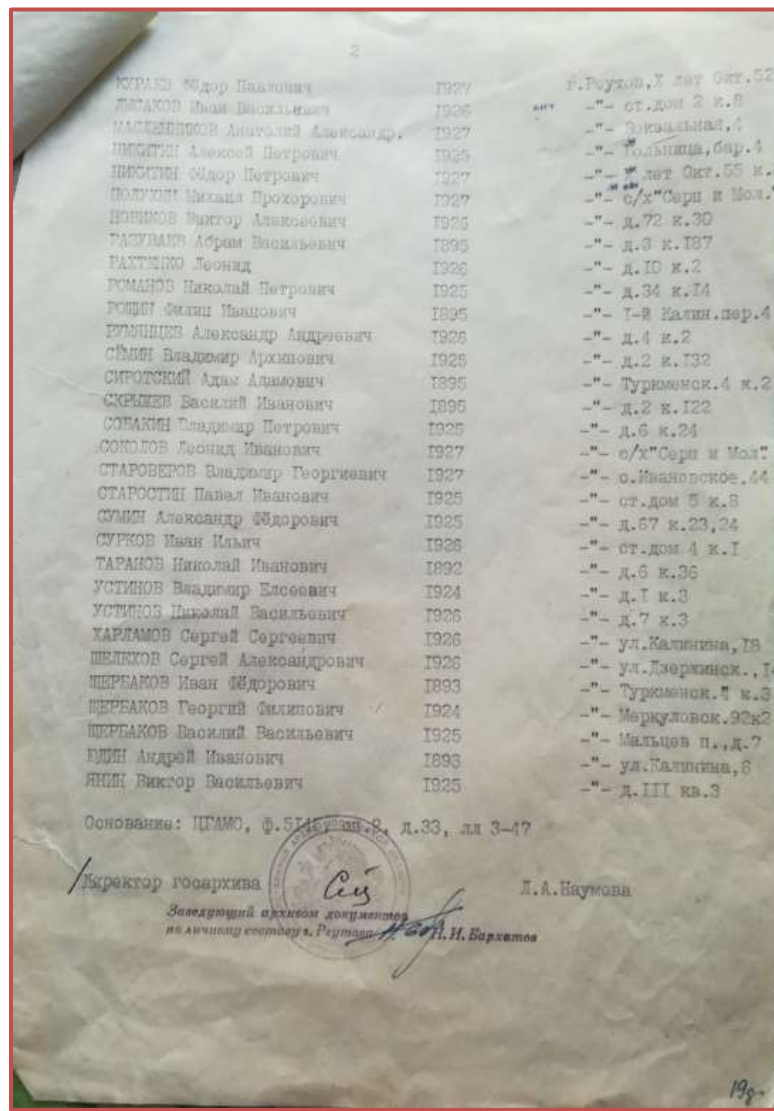 2
КУРАЕВ Фёдор Павлович 1927 г.Реутов,X лет Окт.52
ЛЫСАКОВ Иван Васильевич 1926 -"- ст.дом 2 к.8
МАСЛЕННИКОВ Анатолий Александр. 1927 -"- Вокзальная,4
НИКИТИН Алексей Петрович 1925 -"- Больница,бар.4
НИКИТИН Фёдор Петрович 1927 -"- X лет Окт.55 к.
ПОЛУХИН Михаил Прохорович 1927 -"- с/х"Серп и Мол."
НОВИКОВ Виктор Алексеевич 1926 -"- д.72 к.30
РАЗУВАЕВ Абрам Васильевич I895 -"- д.3 к.I87
РАХТЕНКО Леонид 1926 -"- д.IO к.2
РОМАНОВ Николай Петрович 1925 -"- д.34 к.I4
РОЩИН Филип Иванович I895 -"- I-й Калин.пер.4
РУМЯНЦЕВ Александр Андреевич I926 -"- д.4 к.2
СЁМИН Владимир Архипович I925 -"- д.2 к.I32
СИРОТСКИЙ Адам Адамович I895 -"- Туркменск.4 к.2
СКРЫЖЕВ Василий Иванович I895 -"- д.2 к.I22
СОБАКИН Владимир Петрович I925 -"- д.6 к.24
СОКОЛОВ Леонид Иванович I927 -"- с/х"Серп и Мол".
СТАРОВЕРОВ Владимир Георгиевич I927 -"- с.Ивановское,44
СТАРОСТИН Павел Иванович I925 -"- ст.дом 5 к.8
СУМИН Александр Фёдорович I925 -"- д.67 к.23,24
СУРКОВ Иван Ильич I926 -"- ст.дом 4 к.I
ТАРАНОВ Николай Иванович I892 -"- д.6 к.36
УСТИНОВ Владимир Елсеевич I924 -"- д.I к.3
УСТИНОВ Николай Васильевич I926 -"- д.7 к.3
ХАРЛАМОВ Сергей Сергеевич I926 -"- ул.Калинина,I8
ШЕЛЕХОВ Сергей Александрович I926 -"- ул.Дзержинск.,I4
ЩЕРБАКОВ Иван Фёдорович I893 -"- Туркменск. к.3
ЩЕРБАКОВ Георгий Филипович I924 -"- Меркуловск.92к2
ЩЕРБАКОВ Василий Васильевич I925 -"- Мальцев п.,д.7
ЮДИН Андрей Иванович I893 -"- ул.Калинина,8
ЯНИН Виктор Васильевич I925 -"- д.III кв.3
Основание: ЦГАМО, оп.2, д.33, лл 3-47
Директор госархива Л.А.Наумова
Заведующий архивом документов
по личному составу г. Реутова Н.И. Бархатов
19